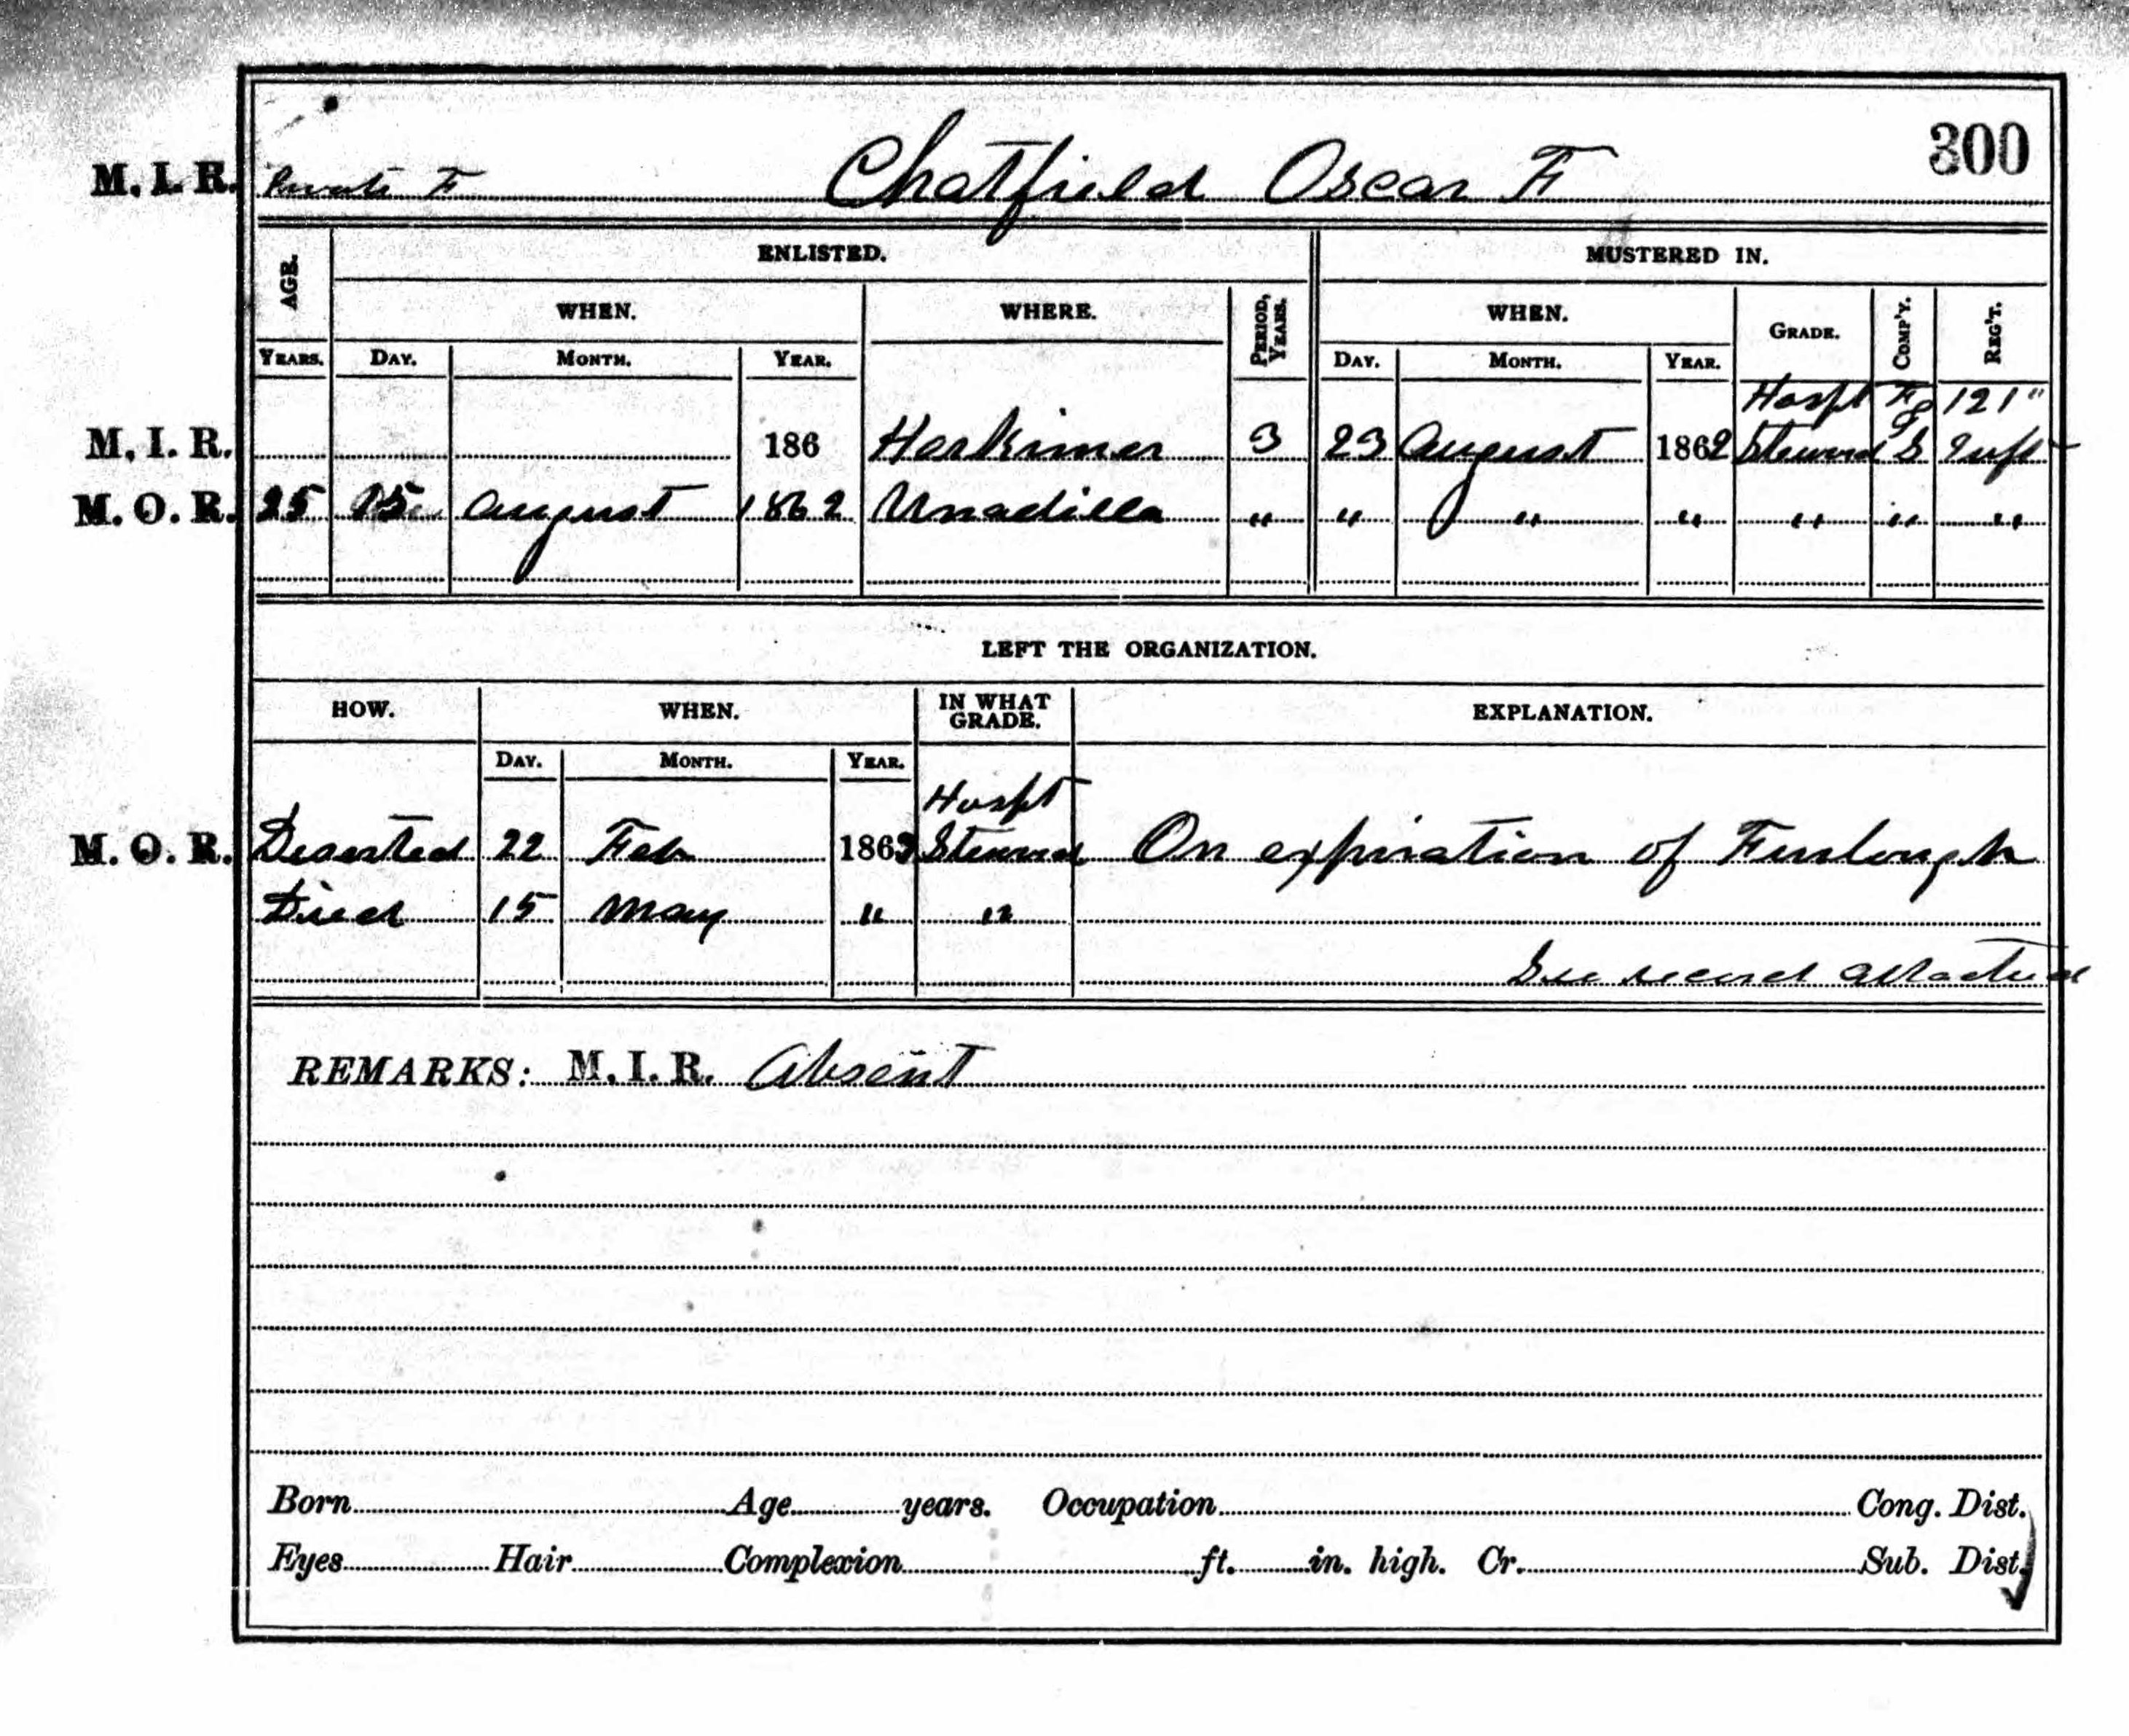 300
M. I. R. Private F Chatfield Oscar F
AGE. ENLISTED. MUSTERED IN.
WHEN. WHERE. PERIOD, YEARS. WHEN. GRADE. COMP'Y. REG'T.
YEARS. DAY. MONTH. YEAR. DAY. MONTH. YEAR.
Hospt F 121"
M. I. R. 186 Herkimer 3 23 August 1862 Steward S Inft
M. O. R. 25 August 1862 Unadilla " " " " " " "
LEFT THE ORGANIZATION.
HOW. WHEN. IN WHAT GRADE. EXPLANATION.
DAY. MONTH. YEAR.
Hospt
M. O. R. Deserted 22 Feb 1863 Steward On expiration of Furlough
Died 15 May " "
See record attached
REMARKS: M. I. R. Absent
Born Age years. Occupation Cong. Dist.
Eyes Hair Complexion ft. in. high. Cr. Sub. Dist.